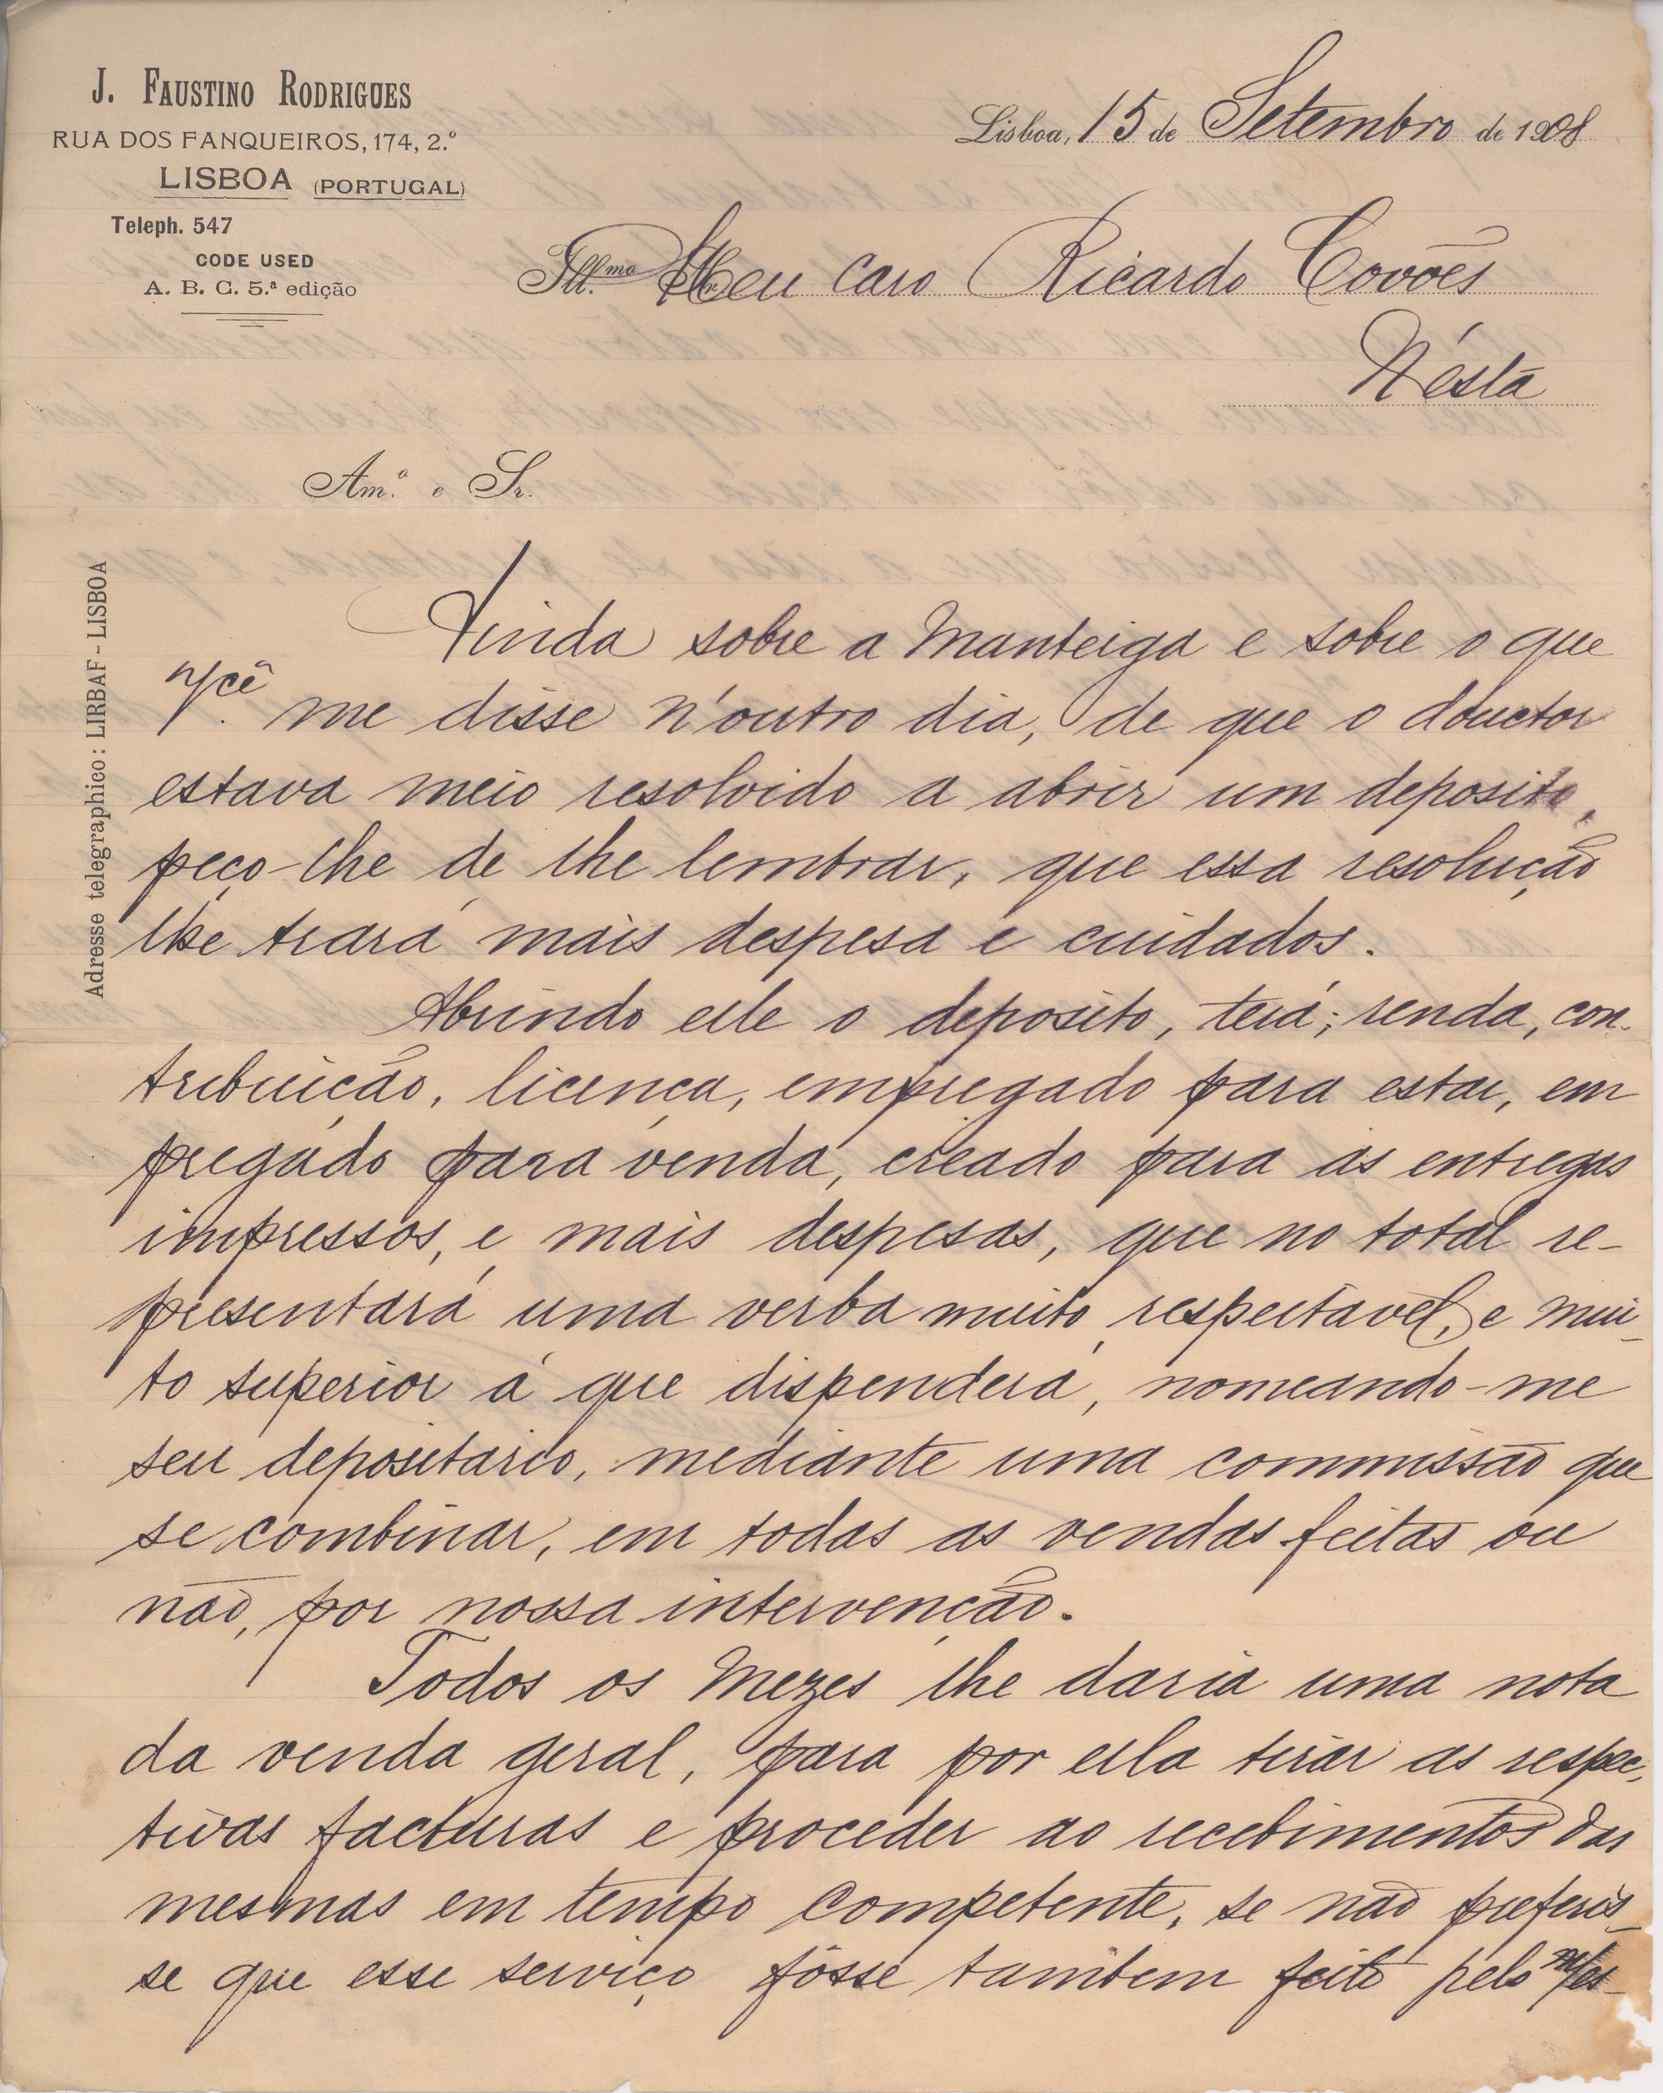 J. FAUSTINO RODRIGUES
RUA DOS FANQUEIROS, 174, 2.º
LISBOA (PORTUGAL)
Teleph. 547
CODE USED
A. B. C. 5.ª edição
Adresse telegraphico: LIRBAF - LISBOA
Lisboa, 15 de Setembro de 1908
Ill.mo Sr. Meu caro Ricardo Covões
N'ésta
Am.º e Sr.
Ainda sobre a Manteiga e sobre o que
Vcê me disse n'outro dia, de que o douctor
estava meio resolvido a abrir um deposito,
peço-lhe de lhe lembrar, que essa resolução
lhe trará mais despesa e cuidados.
Abrindo elle o deposito, terá; renda, con-
tribuição, licença, empregado para estar, em
pregado para venda, creado para as entregas
impressos, e mais despesas, que no total re-
presentará uma verba muito respeitavel, e mui-
to superior á que dispenderá, nomeando-me
seu depositario, mediante uma commissão que
se combinar, em todas as vendas feitas ou
não, por nossa intervenção.
Todos os Mezes lhe daria uma nota
da venda geral, para por ella tirar as respec-
tivas facturas e proceder ao recebimentos das
mesmas em tempo competente, se não preferis-
se que esse serviço fôsse tambem feito pelo m/es-